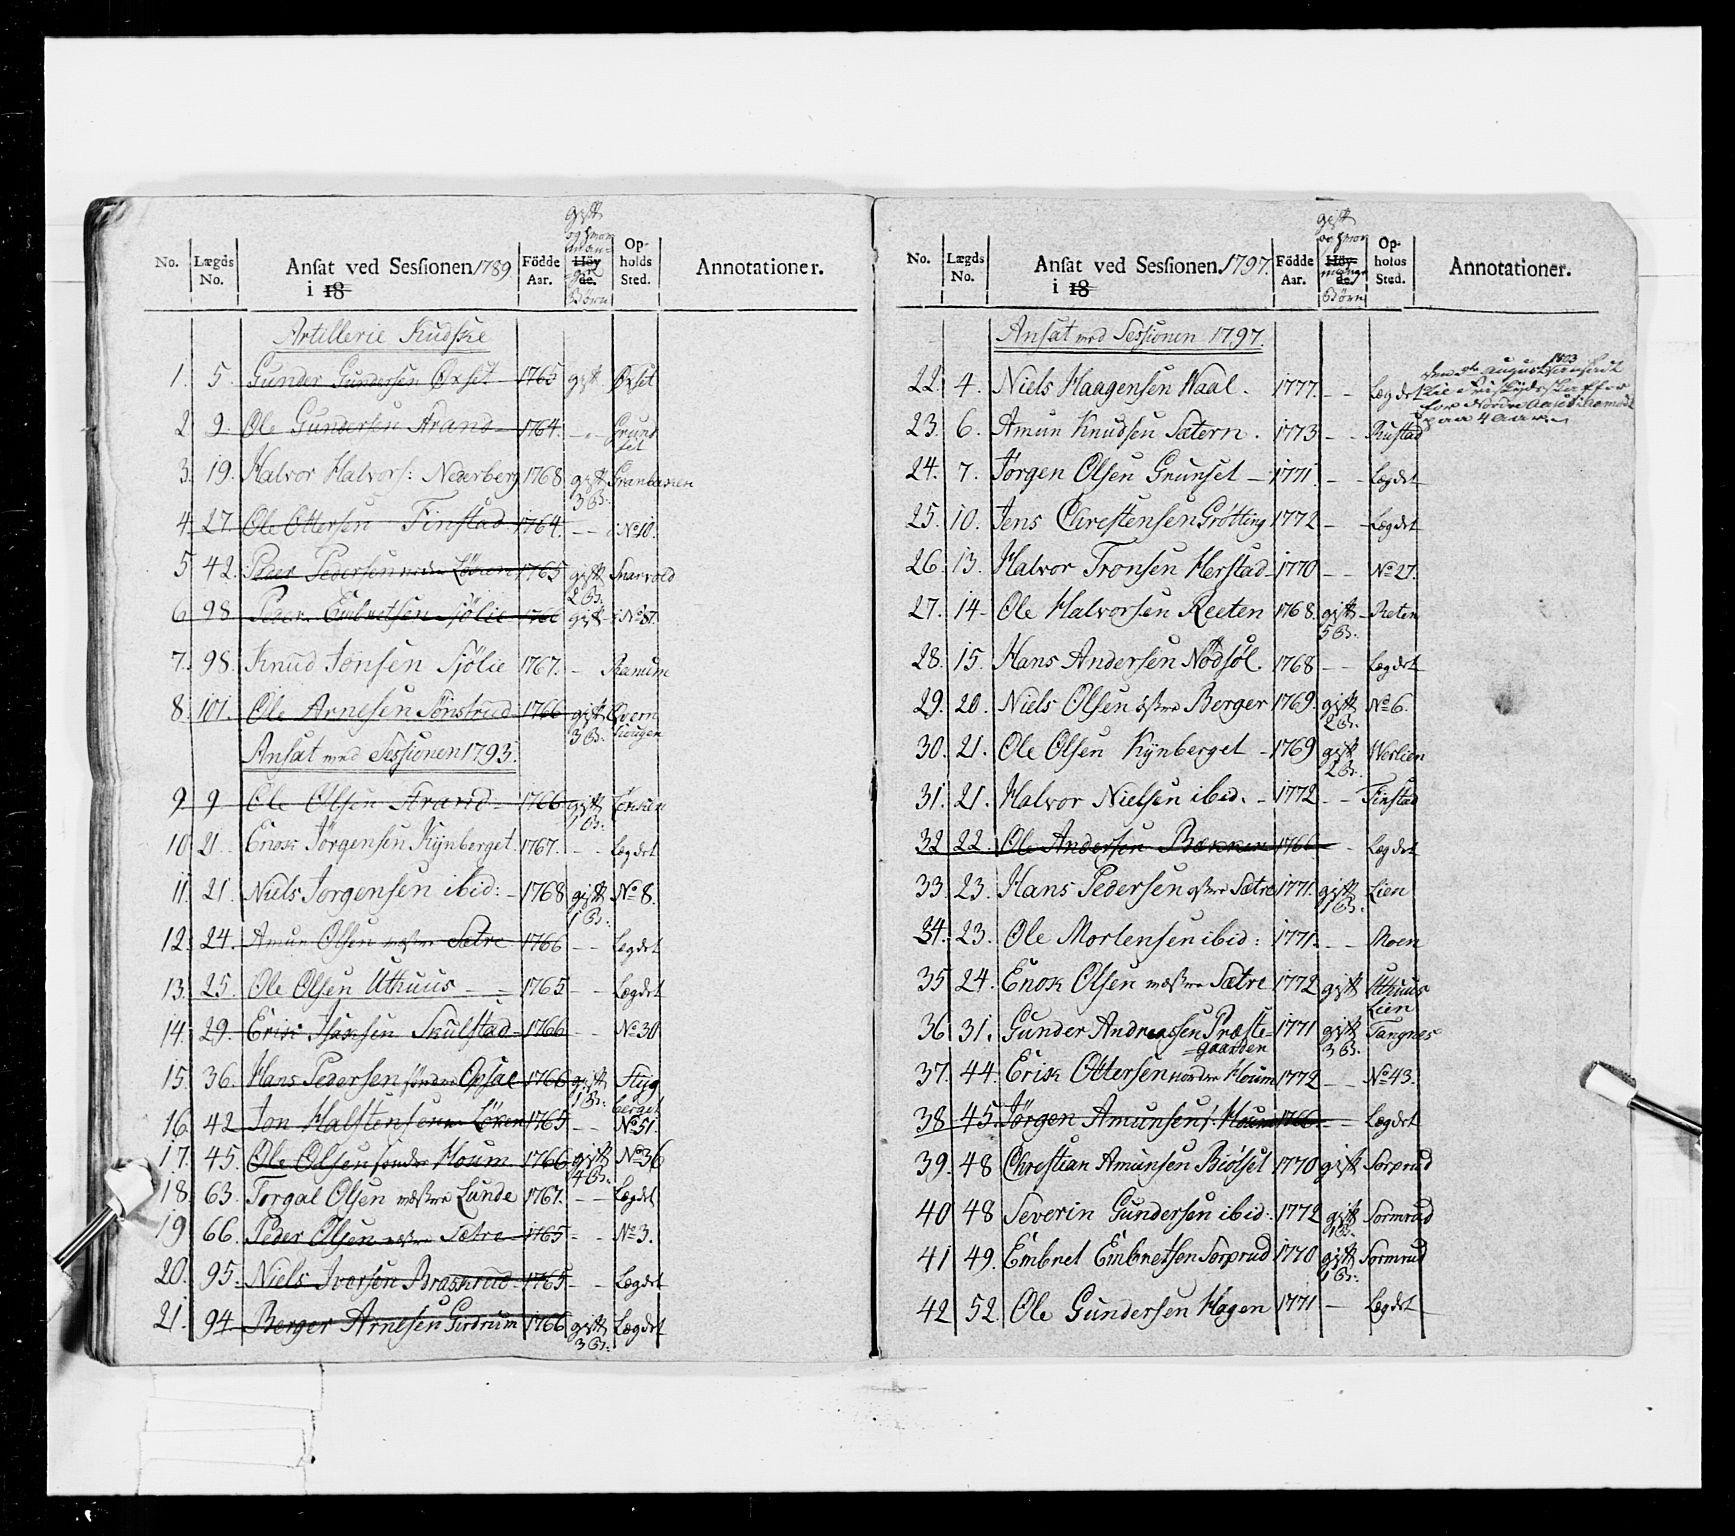 No. Lægds No. Ansat ved Sessionen 1789 i 18 Fødde Aar. gift og hvor mange Höyde. Børn Opholds Sted. Annotationer.
Artillerie Kudske
1. 5. Gunder Gundersen Öxset 1765 gift Öxset
2 9. Ole Gundersen Strand 1764. - - Grundset
3. 19. Halvor Halvors: Nederberg 1768 gift 3 B. Granbakken
4. 27. Ole Ottersen Finstad 1764. - - No 10.
5 42. Peder Pedersen nedre Löken 1765 gift 2 B. Snarvold
6 98 Peder Embretsen Sjölie 1766 gift No 87.
7. 98. Knud Jonsen Sjölie 1767. -
8. 101. Ole Arnesen Sönstrud 1766 gift 3 B. Qvernhougen
Ansat med Sessionen 1793.
9. 9 Ole Olsen Strand 1766 gift 1 B.
10 21 Enok Jörgensen Kynberget. 1767. - - Lægdet
11. 21. Niels Jorgensen ibid: - 1768 gift 1 B. No 8.
12. 24. Amun Olsen Sætre 1766 - - Lægdet
13. 25. Ole Olsen Uthuus - - 1765 - - Lægdet
14. 29. Erik Skulstad 1766 - - No 30
15. 36. Hans Pedersen söndre Opsal 1766 gift 1 B. Stygberget
16. 42 Jon Halstensen Löken 1765 - - No 51.
17. 45. Ole Olsen söndre Houm 1766 gift 4 B. No 36
18. 63. Torgal Olsen Lunde 1767. - - Lægdet
19 66. Peder Olsen Sætre 1765 - - No 3.
20. 95. Niels Iversen Braskerud 1765 - - Lægdet
21. 94 Berger Arnesen Gordrum 1766 gift 3 B. Lægdet
No. Lægds No. Ansat ved Sessionen. 1797. i 18 Fødde Aar. gift og hvor mange Höyde. Børn Opholds Sted. Annotationer.
Ansat med Sessionen 1797.
22. 4. Niels Haagensen Haal. 1777. - - Lægdet
1803
August ansadt
for Nordre
paa 4 Aar
23. 6. Amun Knudsen Sætern. 1773 - - Rustad
24. 7. Jörgen Olsen Grunset - 1771. - - Lægdet
25. 10. Jens Chrestensen Grötting 1772 - - Lægdet
26. 13. Halvor Tronsen Herstad 1770 - - No 27.
27. 14 Ole Halvorsen Reeten 1768. gift 5 B. Reten
28. 15. Hans Andersen Nödsöl. 1768 - - Lægdet
29. 20. Niels Olsen Berger 1769. gift 2 B. No 6.
30. 21. Ole Olsen Kynberget - 1769 gift 2 B.
31. 21. Halvor Nielsen ibid. - 1772 - - Finstad
32 22. Ole Andersen Bækken 1766 - Lægdet
33. 23. Hans Pedersen Sætre 1771. gift 1 B. Lien
34. 23. Ole Mortensen ibid: 1771. - - Moen
35 24. Enok Olsen Sætre 1772 gift Uthuus Lien
36 31. Gunder Andreassen Præste= =gaarden 1771 gift 3 B. Tangnes
37. 44. Erik Ottersen nordre Houm 1772 - - No 43.
38 45. Jörgen Amunsen s. Houm 1766 - - Lægdet
39. 48 Chrestian Amunsen Biölset 1770 gift Sorprud
40 48 Severin Gundersen ibid: 1772 gift 1 B. Sormrud
41 49. Embret Embretsen Sorprud 1770 gift 1 B: Sormrud
42 52. Ole Gundersen Hagen 1771 - Lægdet